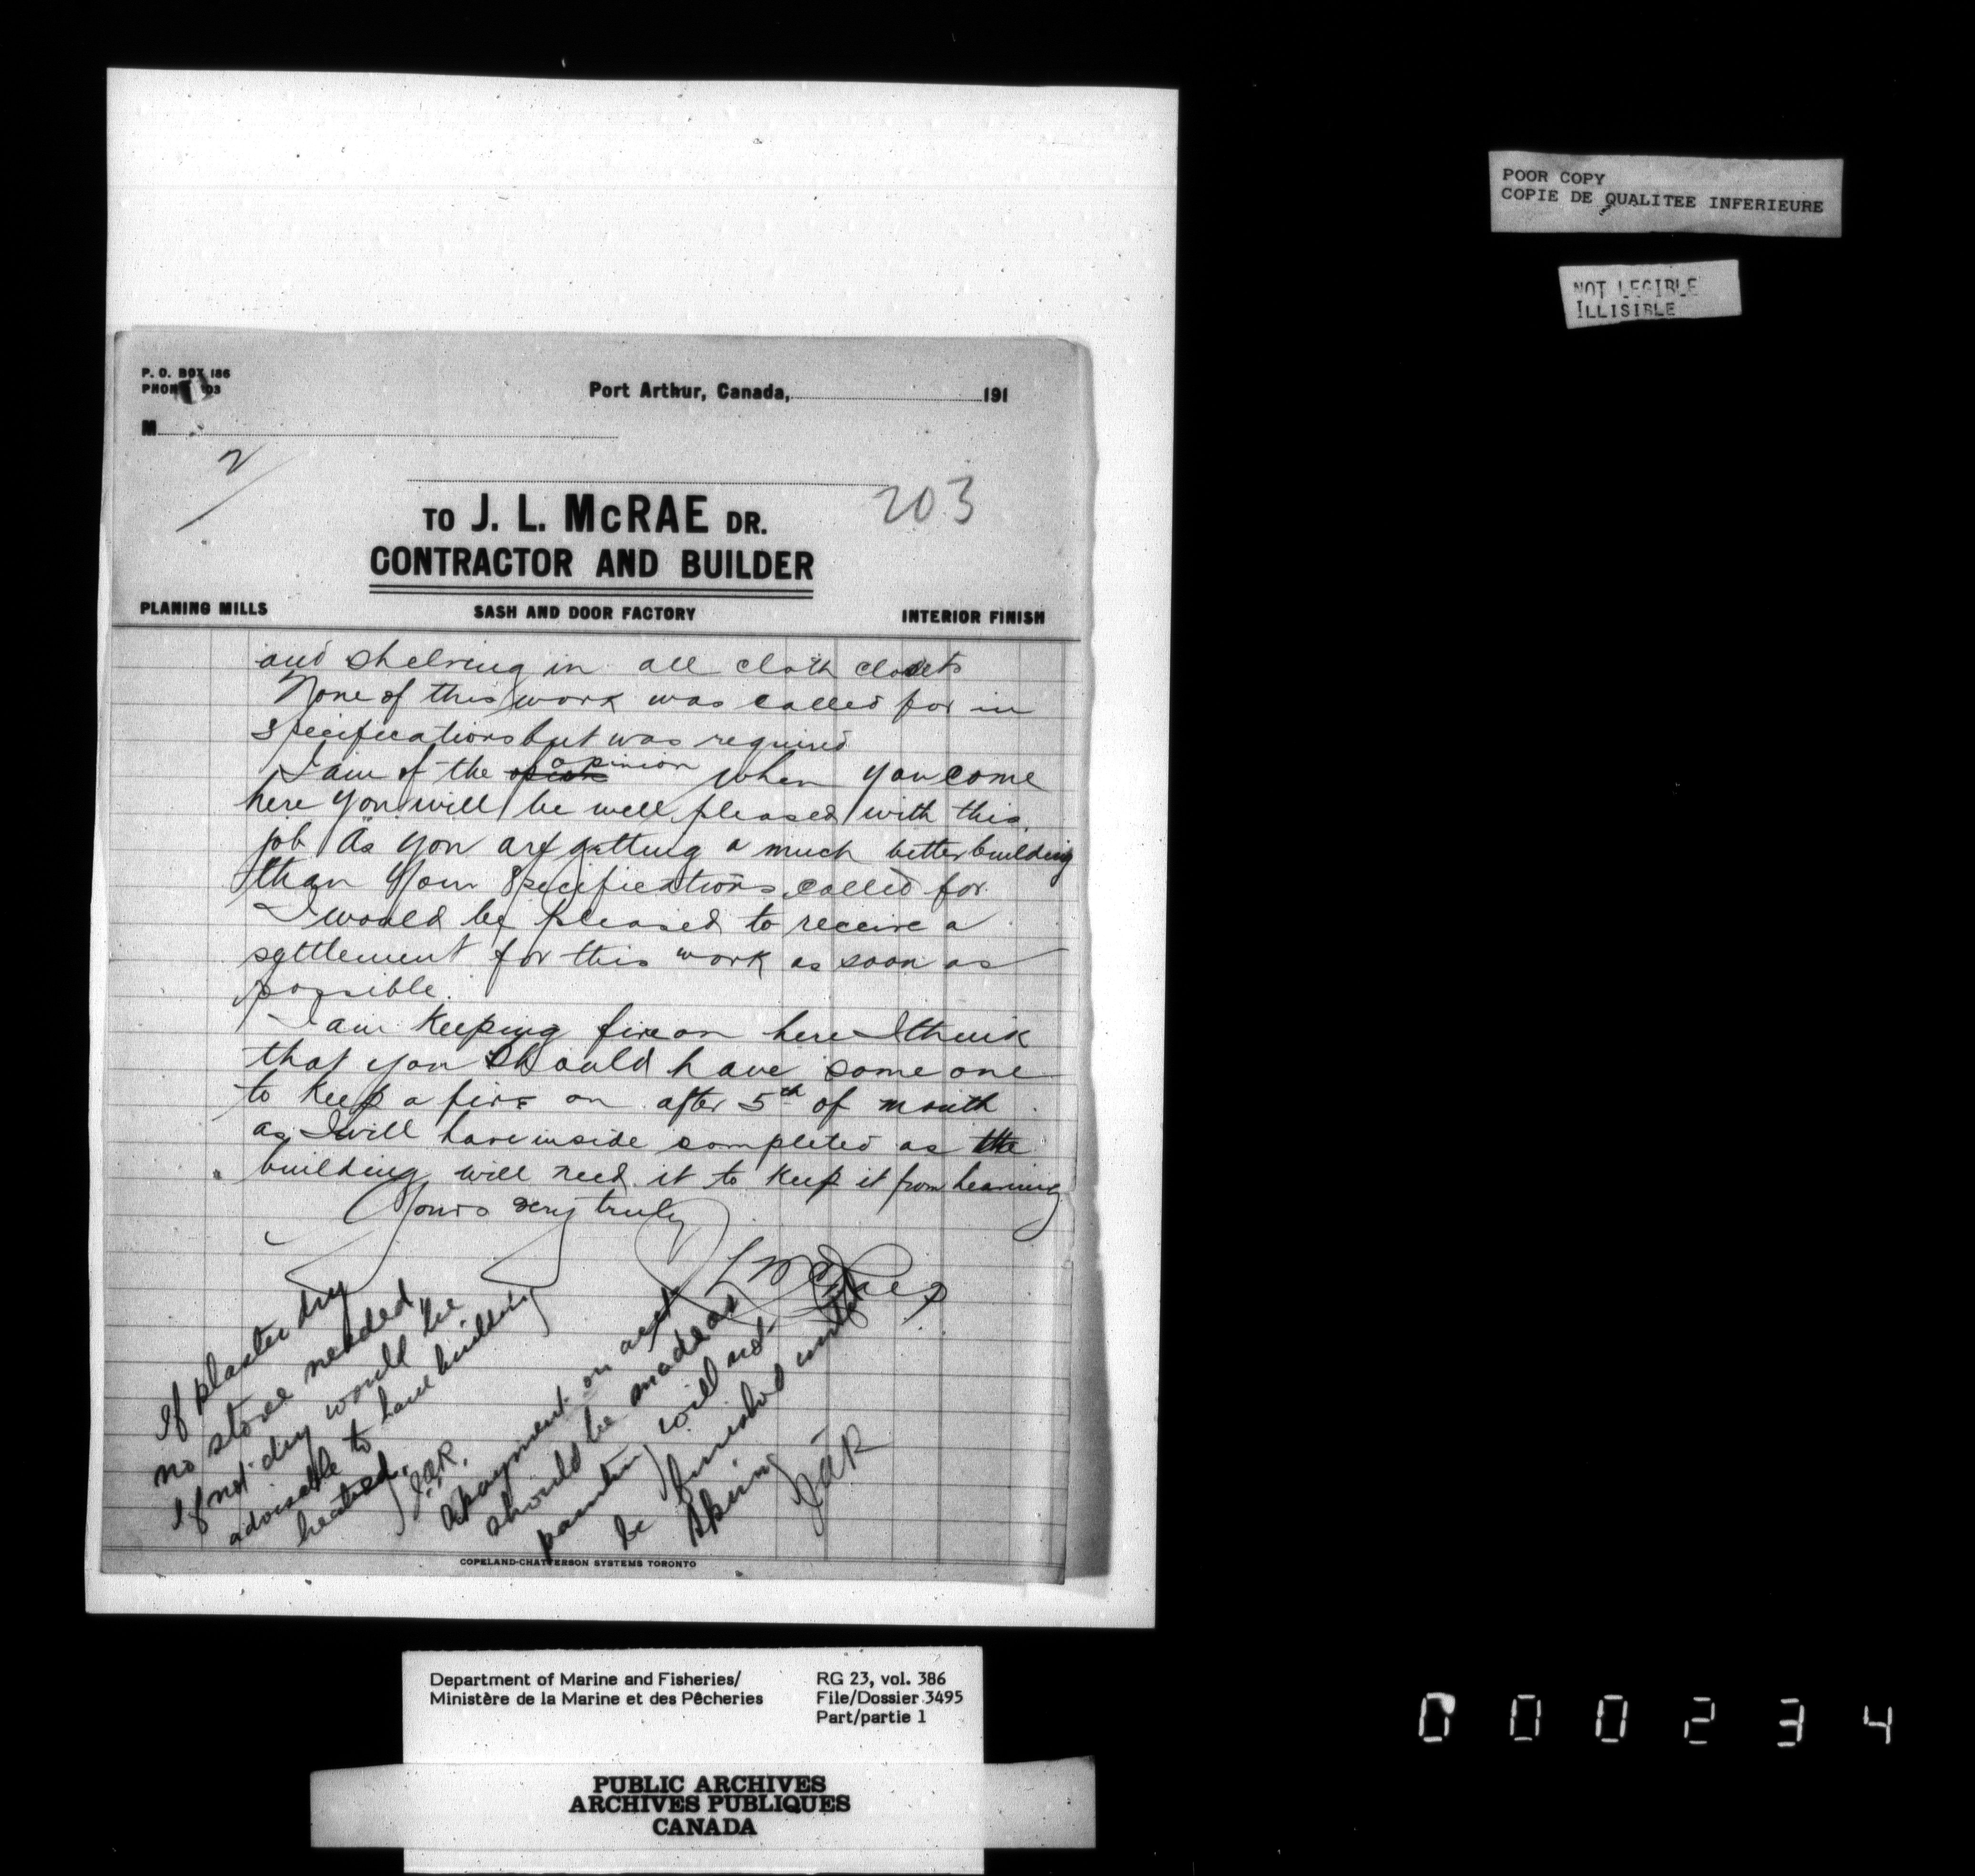 POOR COPY
COPIE DE QUALITEE INFERIEURE
NOT LEGIBLE
ILLISIBLE
P. O. BOX 186
PHONE 03
Port Arthur, Canada, 191
M
2
203
TO J. L. McRAE DR.
CONTRACTOR AND BUILDER
PLANING MILLS SASH AND DOOR FACTORY INTERIOR FINISH
and shelving in all cloth closets
None of this work was called for in
specifications but was required
I am of the opinion when you come
here you will be well pleased with this
job As you are getting a much better building
than your specifications called for
I would be pleased to receive a
settlement for this work as soon as
possible.
I am keeping fire on here I think
that you should have some one
to keep a fire on after 5th of month
as I will have inside completed as the
building will need it to keep it from heaving
Yours very truly
J L McRae
If plaster dry
no stove needed,
If not dry would be
advisable to have building
heated. J.A.R.
A payment on acct
should be made as
painting will not
be finished until
spring JAR
COPELAND-CHATTERSON SYSTEMS TORONTO
Department of Marine and Fisheries/
Ministère de la Marine et des Pêcheries
RG 23, vol. 386
File/Dossier 3495
Part/partie 1
PUBLIC ARCHIVES
ARCHIVES PUBLIQUES
CANADA
000234